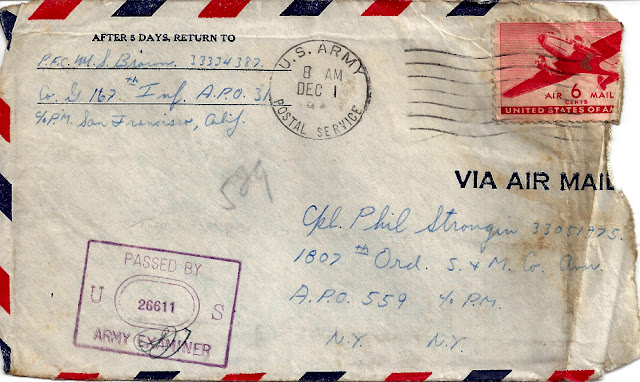 AFTER 5 DAYS, RETURN TO
P.F.C. M. S. Brown 33334387.
Co. G 167th Inf. A.P.O. 31
c/o P.M. San Francisco, Calif.
U.S. ARMY
8 AM
DEC 1
POSTAL SERVICE
AIR 6 MAIL
CENTS
UNITED STATES OF AM
VIA AIR MAIL
589
Cpl. Phil Strongin 33051975.
1807th Ord. S. & M. Co. Avn.
A.P.O. 559 c/o P.M.
N.Y. N.Y.
PASSED BY
U 26611 S
ARMY EXAMINER